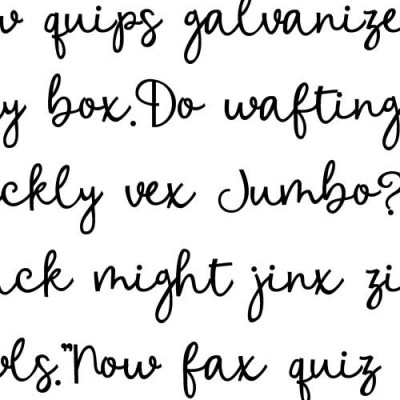 w quips galvanize
y box.Do wafting
ckly vex Jumbo?
ack might jinx zi
wls."Now fax quiz